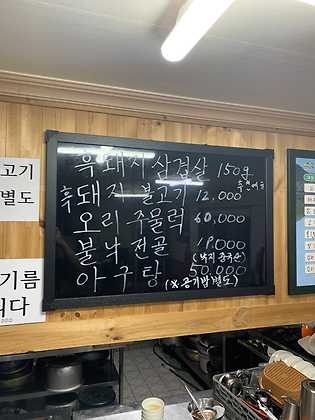 흑돼지 삼겹살 150g
흑돼지 불고기 12.000
오리 주물럭 60.000
불낙 전골
(낙지 중국산)
아구탕 50.000
(※공기밥 별도)
고기
별도
기름
니다